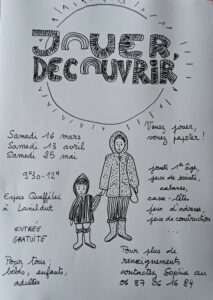 JOUER,
DÉCOUVRIR
Samedi 16 mars
Samedi 13 avril
Samedi 25 mai
9h30-12h
Espace Queffélec
à Lanildut
ENTRÉE
GRATUITE
Pour tous :
bébés, enfants,
adultes
Venez jouer,
venez papoter !
jouets 1er âge,
jeux de société,
cabanes,
casse-têtes
jeux d'adresse,
jeux de construction
...
Pour plus de
renseignements
contactez Sophia au
06 87 86 16 84